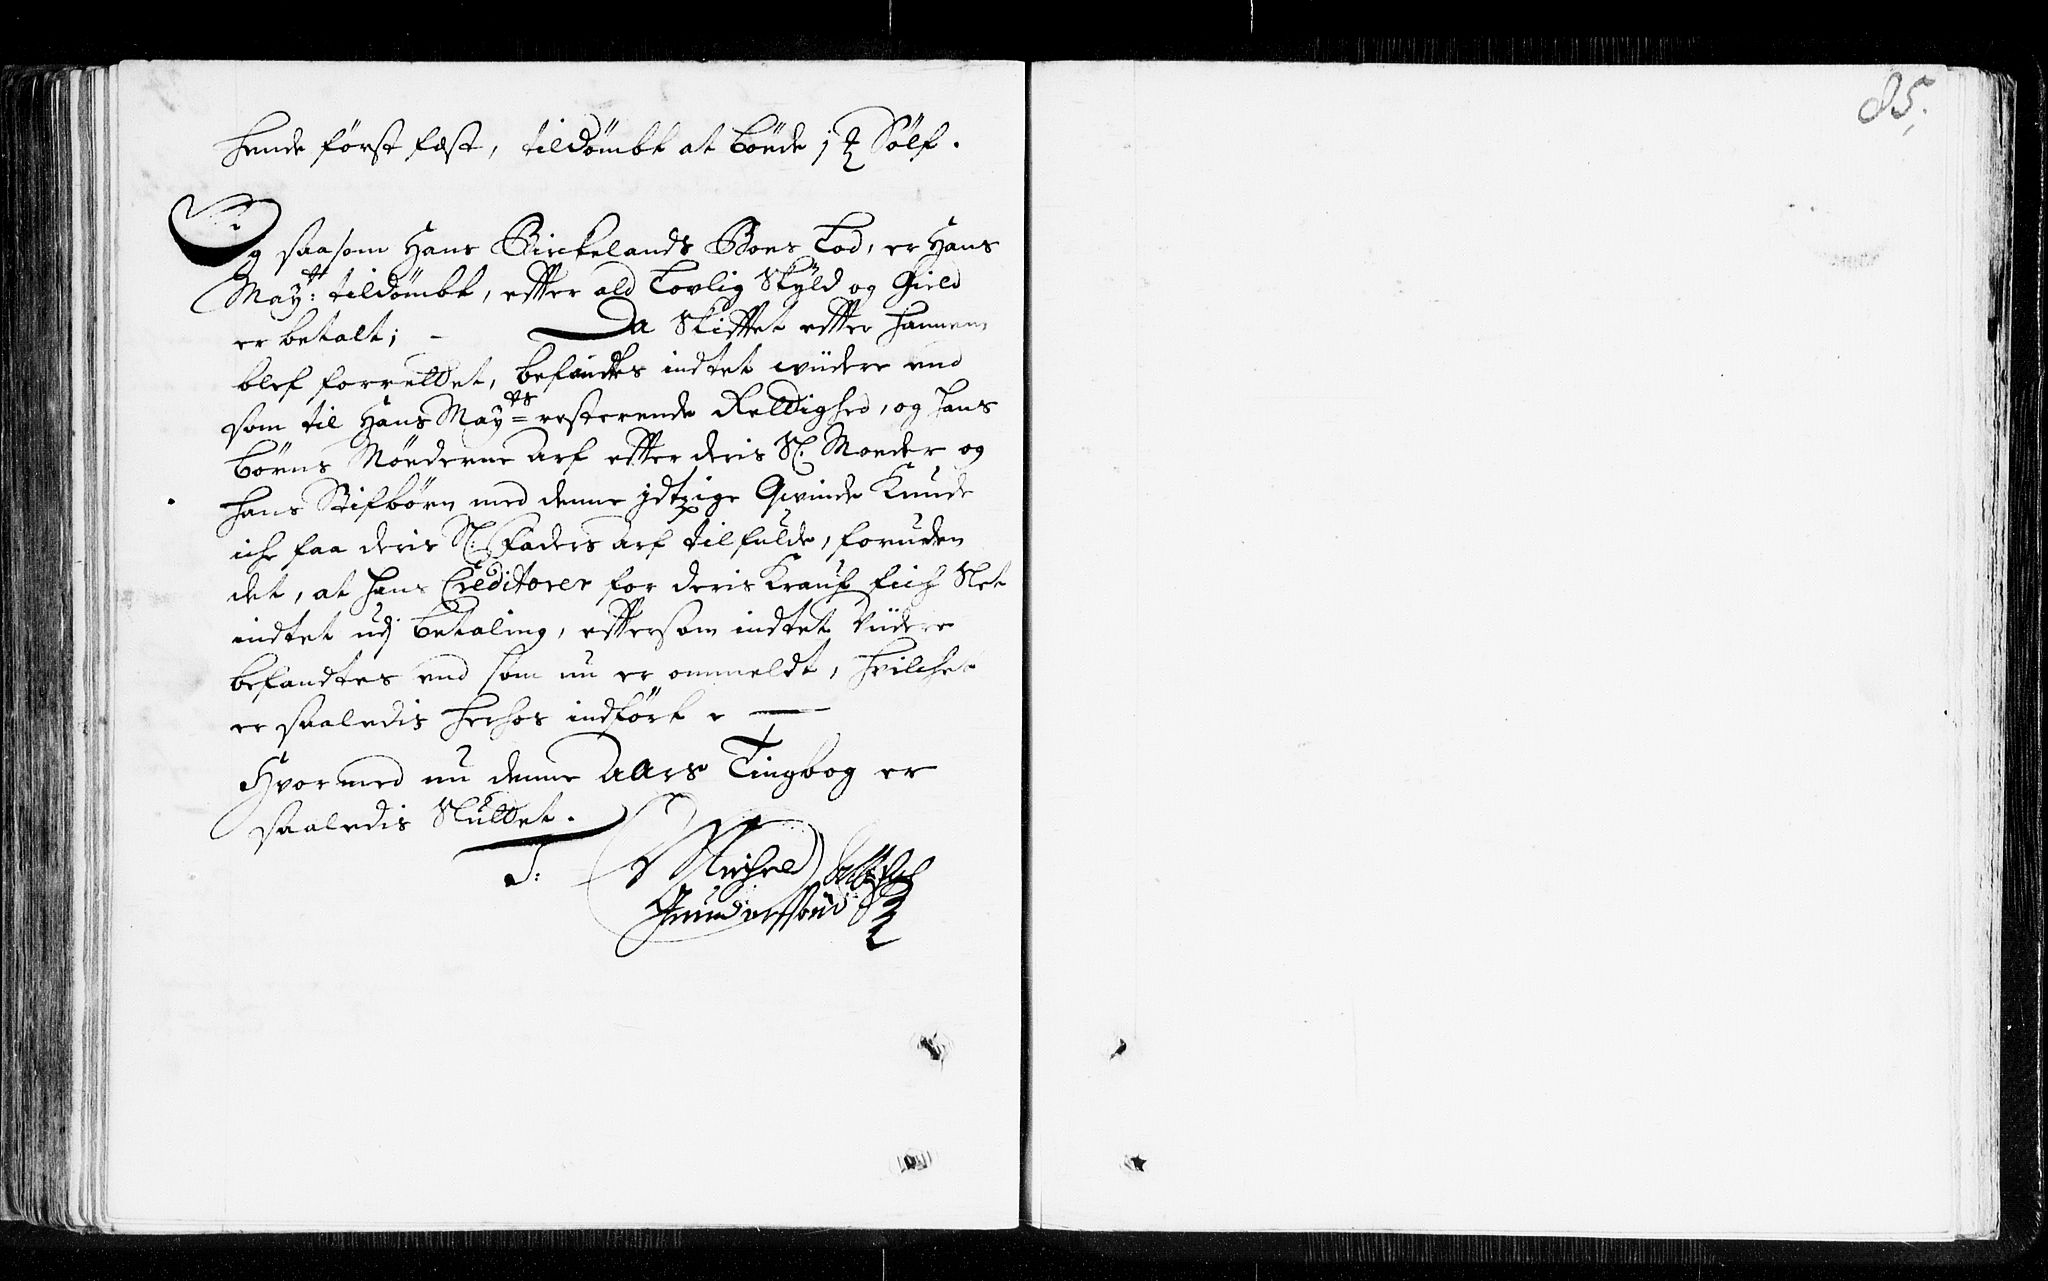 hende først fæst, tildømbt at bøede 1 ℔ Sølf.
Og saasom Hans Birckelands Boes Lod, er Hans
Mayᵗᵗ: tildømbt, effter ald Lovlig Skyld og Gield
er betalt; - Da Skifftet effter hannem
blef forrettet, befandtes indtet widere end
som til Hans Mayᵗˢ resterende Rettighed, og hans
børns Møderne Arf effter deris Sl. Moeder og
hans Stifbørn med denne jdtzige Qvinde Kunde
iche faa deris Sl: Faders Arf tilfulde, foruden
det, at hans Creditorer for deris Krauf fich Slet
indtet udj betaling, efftersom indtet Videre
befandtes end som nu er ommeldt, hvilchet
er saaledis herhos indført
Hvormed nu denne Aars Tingbog er
saaledis Sluttet.
Michel
85.